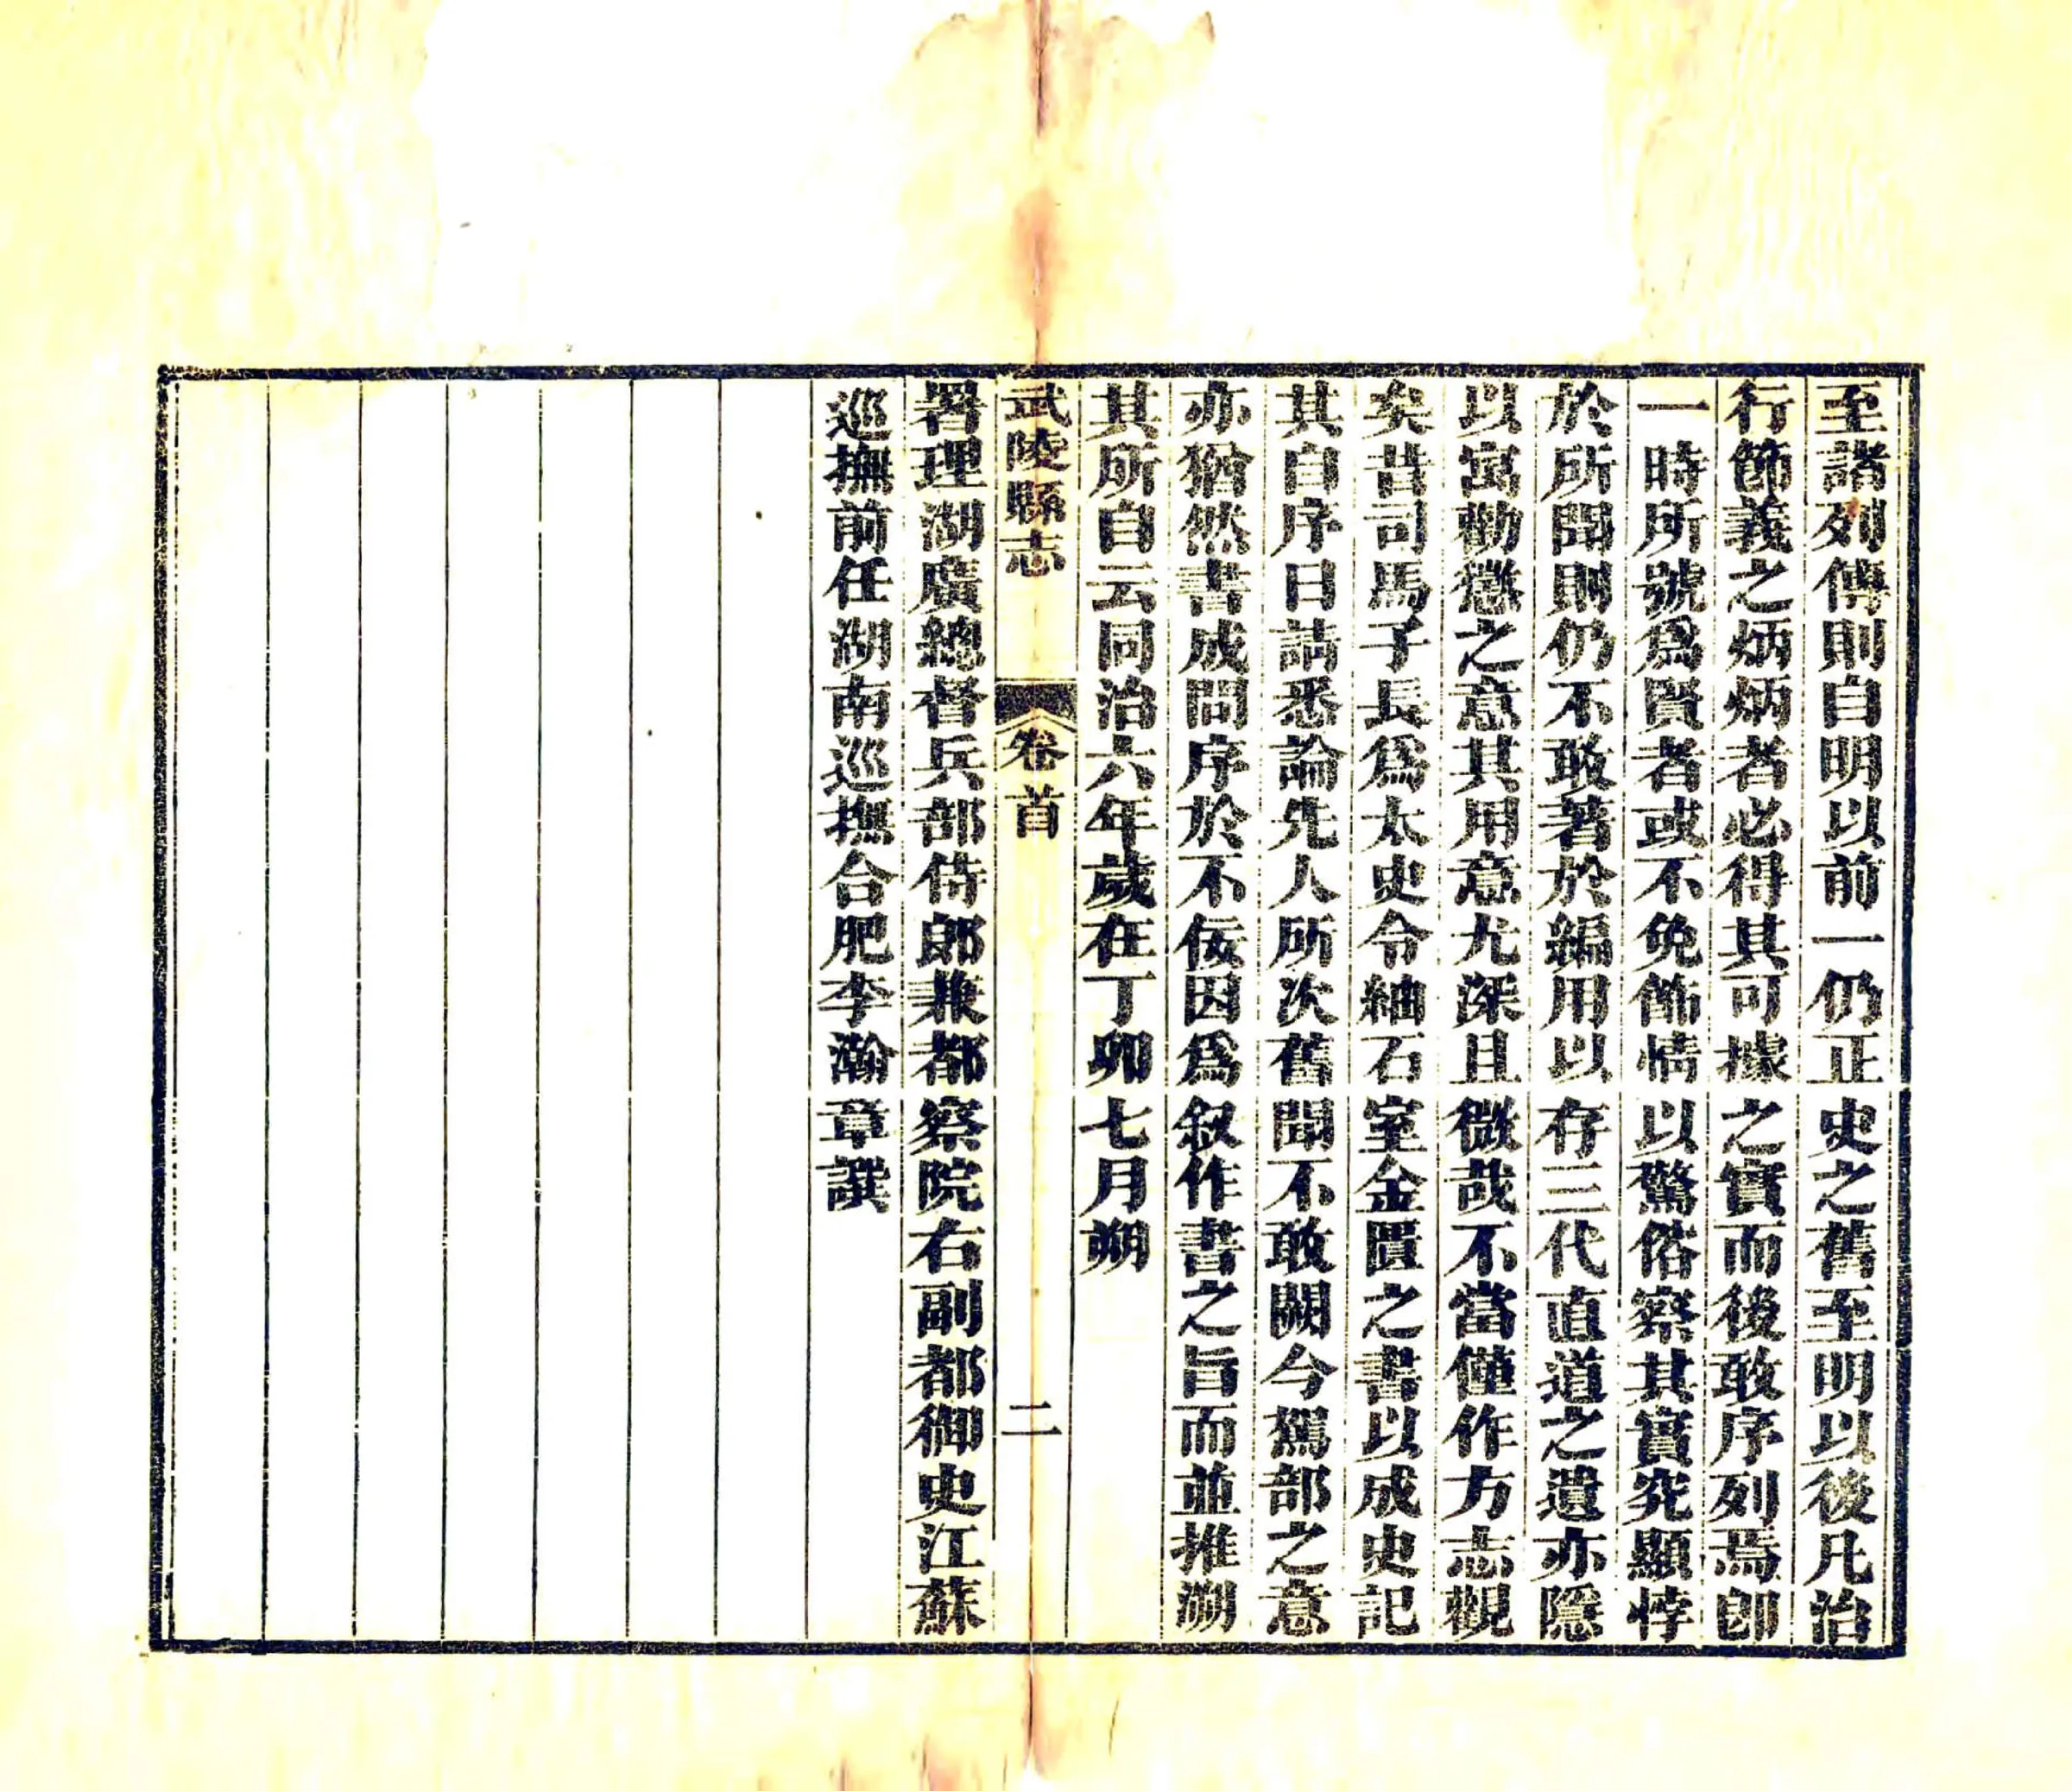 至諸列傳則自明以前一仍正史之舊至明以後凡治
行節義之炳炳者必得其可據之實而後敢序列焉卽
一時所號爲賢者或不免飾情以驚俗察其實究顯悖
於所聞則仍不敢著於編用以存三代直道之遺亦隱
以寓勸懲之意其用意尤深且微哉不當僅作方志觀
矣昔司馬子長爲太史令紬石室金匱之書以成史記
其自序曰請悉論先人所次舊聞不敢闕今駕部之意
亦猶然書成問序於不佞因爲叙作書之旨而並推溯
其所自云同治六年歲在丁卯七月朔
武陵縣志 卷首 二
署理湖廣總督兵部侍郎兼都察院右副都御史江蘇
巡撫前任湖南巡撫合肥李瀚章譔